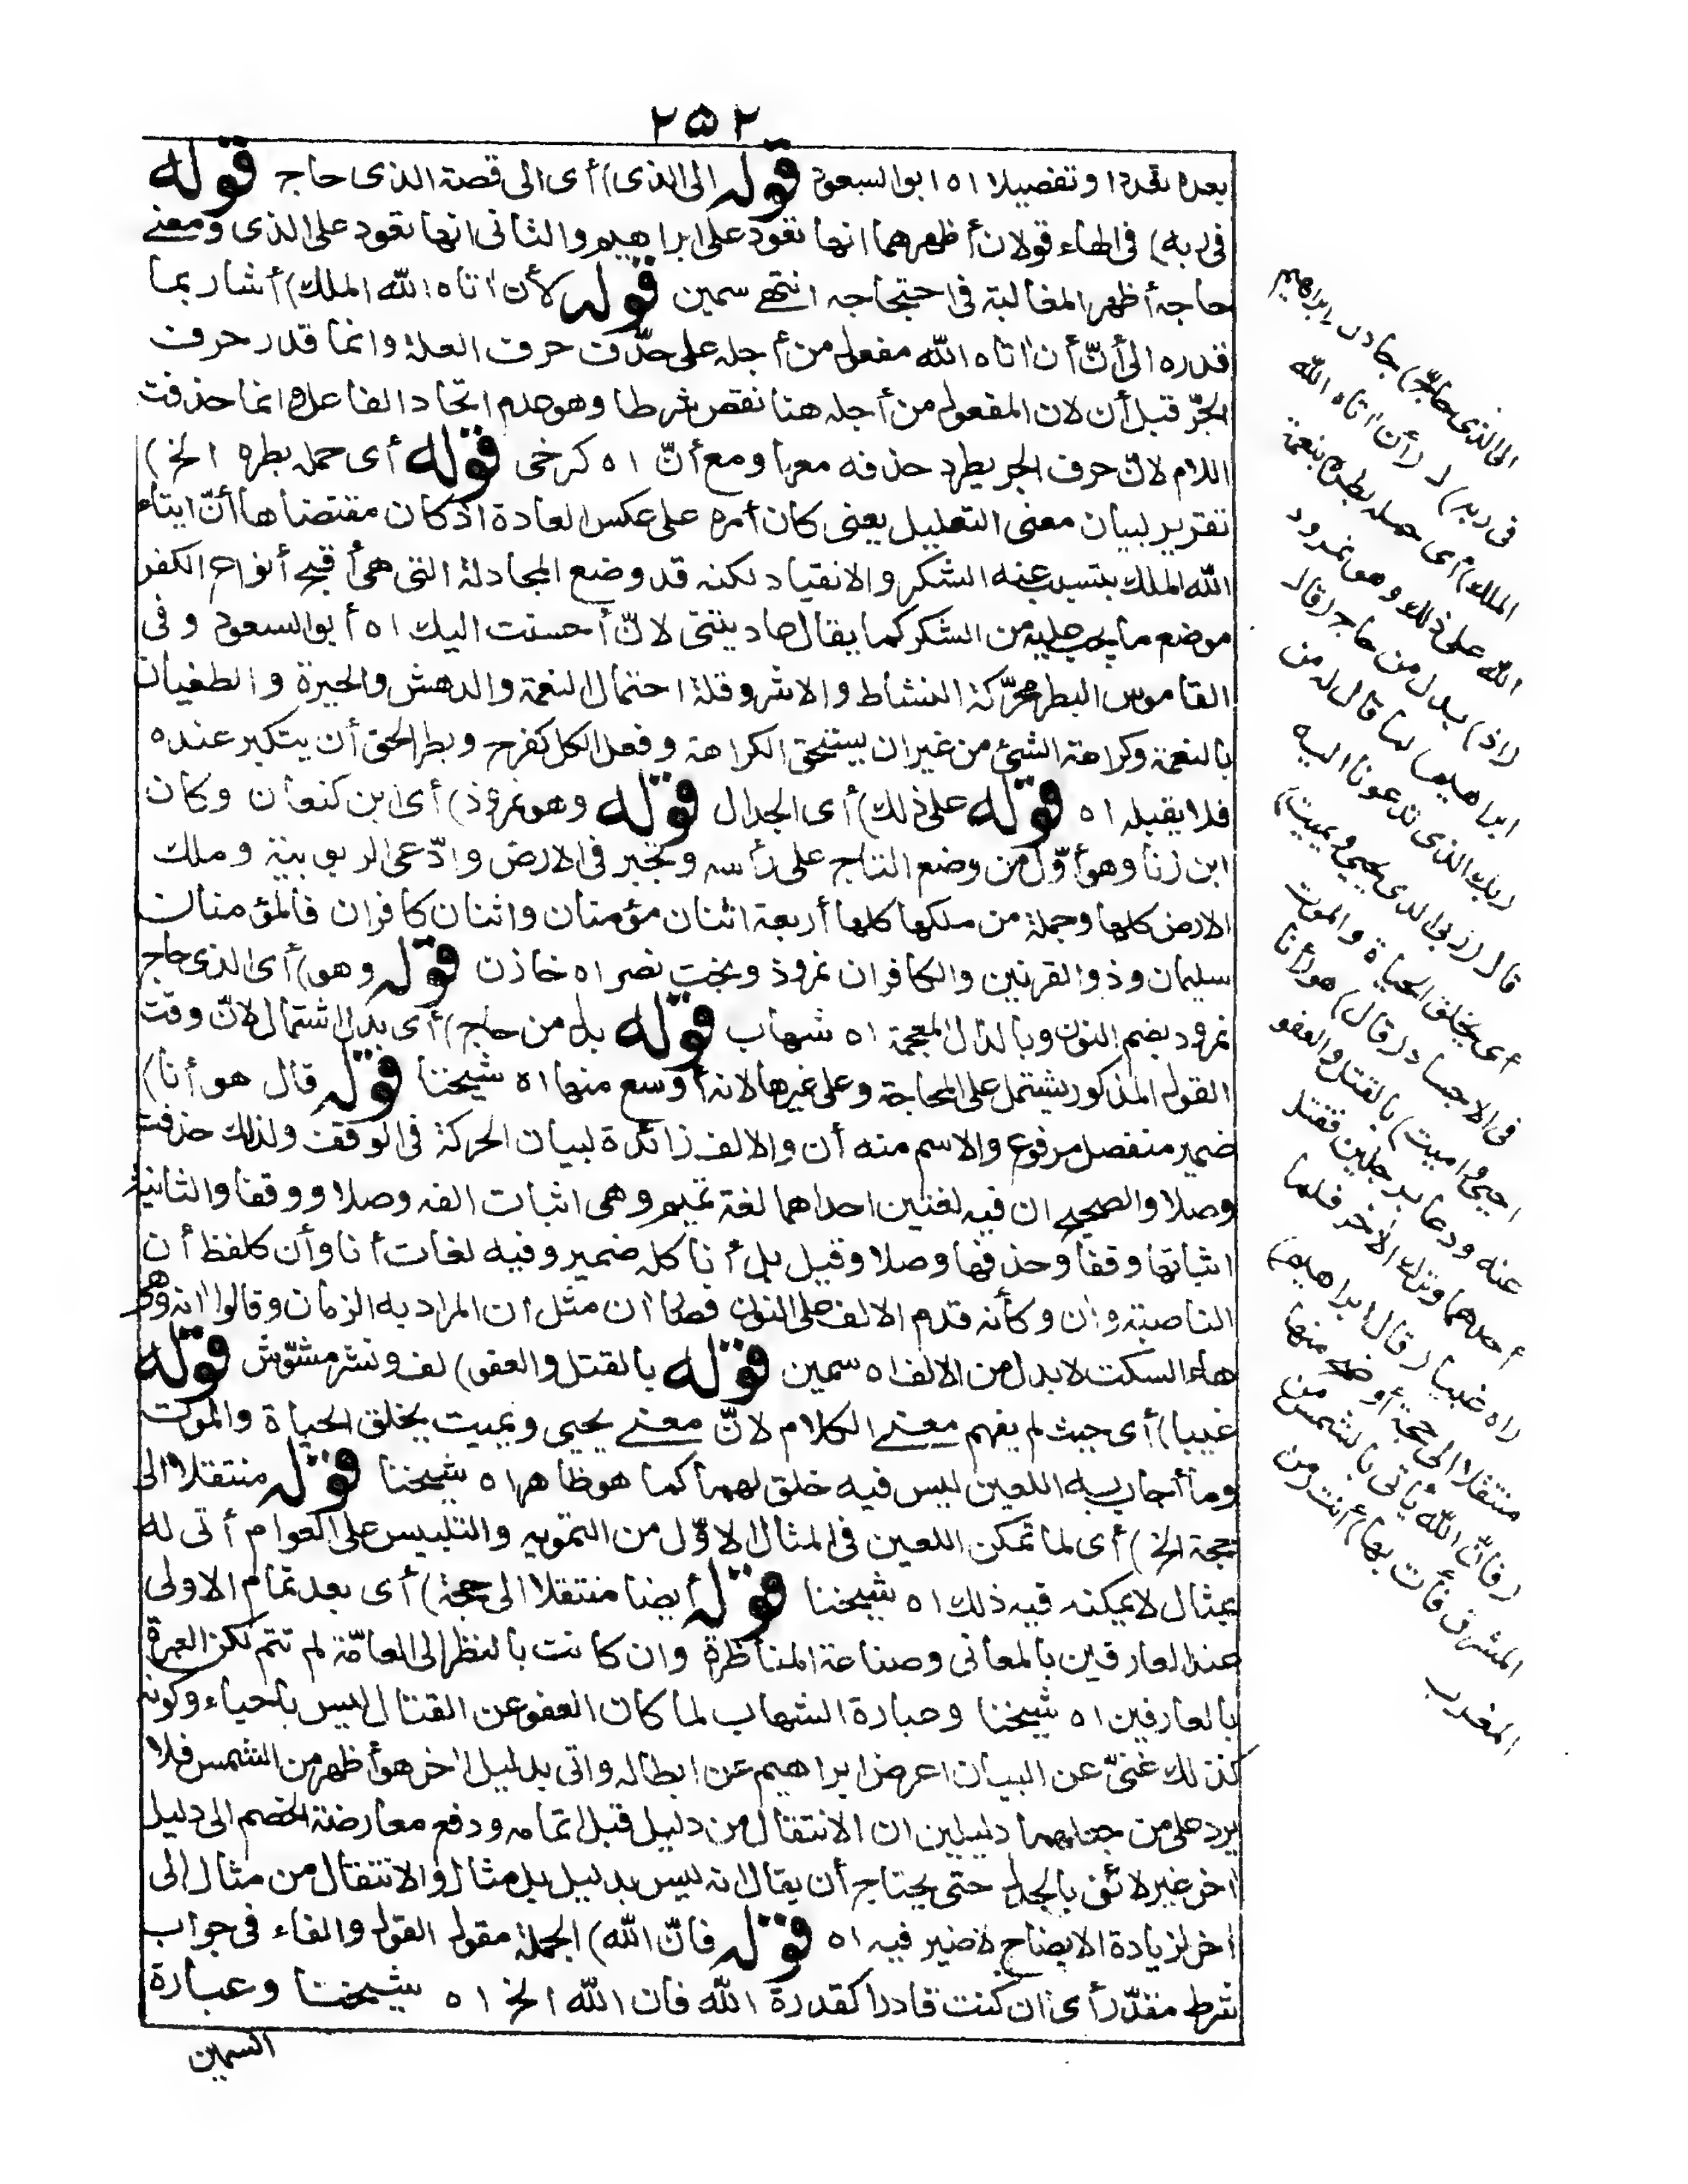 ٢٥٢
بعده تعددا وتفصيلا اه ابو السعود قوله الى الذى) أى الى قصة الذى حاج قوله
فى ربه) فى الهاء قولان أظهرهما انها تعود على ابراهيم والثانى انها تعود على الذى ومعنى
حاجه أظهر المغالبة فى احتجاجه انتهى سمين قوله لأن اتاه الله الملك) أشار بما
قدره الى أنّ أن اتاه الله مفعول من أجله على حذف حرف العلة وانما قدر حرف
الجرّ قبل أن لان المفعول من أجله هنا نقص شرطا وهو عدم اتحاد الفاعل وانما حذفت
اللام لانّ حرف الجر يطرد حذفه معها ومع أنّ اه كرخى قوله أى حمله بطره الخ)
تقرير لبيان معنى التعليل يعنى كان أمره على عكس العادة اذ كان مقتضاها أنّ ايتاء
الله الملك يتسبب عنه الشكر والانقياد لكنه قد وضع المجادلة التى هى أقبح أنواع الكفر
موضع ما يجب عليه من الشكر كما يقال عاديتنى لانّ أحسنت اليك اه أبو السعود وفى
القاموس البطر محرّكة النشاط والاشر وقلة احتمال النعمة والدهش والحيرة والطغيان
بالنعمة وكراهة الشئ من غير ان يستحق الكراهة وفعل الكل كفرح وبطر الحق أن يتكبر عنده
فلا يقبله اه قوله على ذلك) أى الجدال قوله وهو نمروذ) أى ابن كنعان وكان
ابن زنا وهو أوّل من وضع التاج على رأسه وتجبر فى الارض وادّعى الربوبية وملك
الارض كلها وجملة من ملكها كلها أربعة اثنان مؤمنان واثنان كافران فالمؤمنان
سليمان وذو القرنين والكافران نمروذ وبخت نصر اه خازن قوله وهو) أى الذى حاج
نمرود بضم النون وبالذال المعجمة اه شهاب قوله بدل من حاج) أى بدل اشتمال لانّ وقت
القول المذكور يشتمل على المحاجة وعلى غيرها لانه أوسع منها اه شيخنا قوله قال هو أنا)
ضمير منفصل مرفوع والاسم منه أن والالف زائدة لبيان الحركة فى الوقف ولذلك حذفت
وصلا والصحيح ان فيه لغتين احداهما لغة تميم وهى اثبات الفه وصلا ووقفا والثانية
اثباتها وقفا وحذفها وصلا وقيل بل أنا كله ضمير وفيه لغات أنا وأن كلفظ أن
الناصبة وان وكأنه قدم الالف على النون فصار ان مثل ان المراد به الزمان وقالوا انه وهى
هاء السكت لا بدل من الالف اه سمين قوله بالقتل والعفو) لف ونشر مشوّش قوله
غبيا) أى حيث لم يفهم معنى الكلام لانّ معنى يحيى ويميت يخلق الحياة والموت
وما أجاب به اللعين ليس فيه خلق لهما كما هو ظاهر اه شيخنا قوله منتقلا الى
حجة الخ) أى لما تمكن اللعين فى المثال الاوّل من التمويه والتلبيس على العوام أتى له
بمثال لا يمكنه فيه ذلك اه شيخنا قوله أيضا منتقلا الى حجة) أى بعد تمام الاولى
عند العارفين بالمعانى وصناعة المناظرة وان كانت بالنظر الى العامّة لم تتم لكن العبرة
بالعارفين اه شيخنا وعبارة الشهاب لما كان العفو عن القتال ليس باحياء وكونه
كذلك غنىّ عن البيان اعرض ابراهيم عن ابطاله واتى بدليل اخر هو أظهر من الشمس فلا
يرد على من جعلهما دليلين ان الانتقال من دليل قبل اتمامه ودفع معارضة الخصم الى دليل
اخر غير لائق بالجدل حتى يحتاج أن يقال انه ليس بدليل بل مثال والانتقال من مثال الى
اخر لزيادة الايضاح لا ضير فيه اه قوله فانّ الله) الجملة مقول القول والفاء فى جواب
شرط مقدّر أى ان كنت قادرا كقدرة الله فان الله الخ اه شيخنا وعبارة
السمين
الى الذى حاجّ) جادل ابراهيم
فى ربه) لـ (أن اتاه الله
الملك) أى حمله بطره بنعمة
الله على ذلك وهو نمرود
(اذ) بدل من حاج (قال
ابراهيم) لما قال له من
ربك الذى تدعونا اليه
قال (ربى الذى يحيى ويميت)
أى يخلق الحياة والموت
فى الاجساد (قال) هو (أنا
احيى واميت) بالقتل والعفو
عنه ودعا برجلين فقتل
أحدهما وترك الآخر فلما
راه غبيا (قال ابراهيم)
منتقلا الى حجة أوضح منها
(فانّ الله يأتى بالشمس من
المشرق فأت بها) أنت (من
المغرب